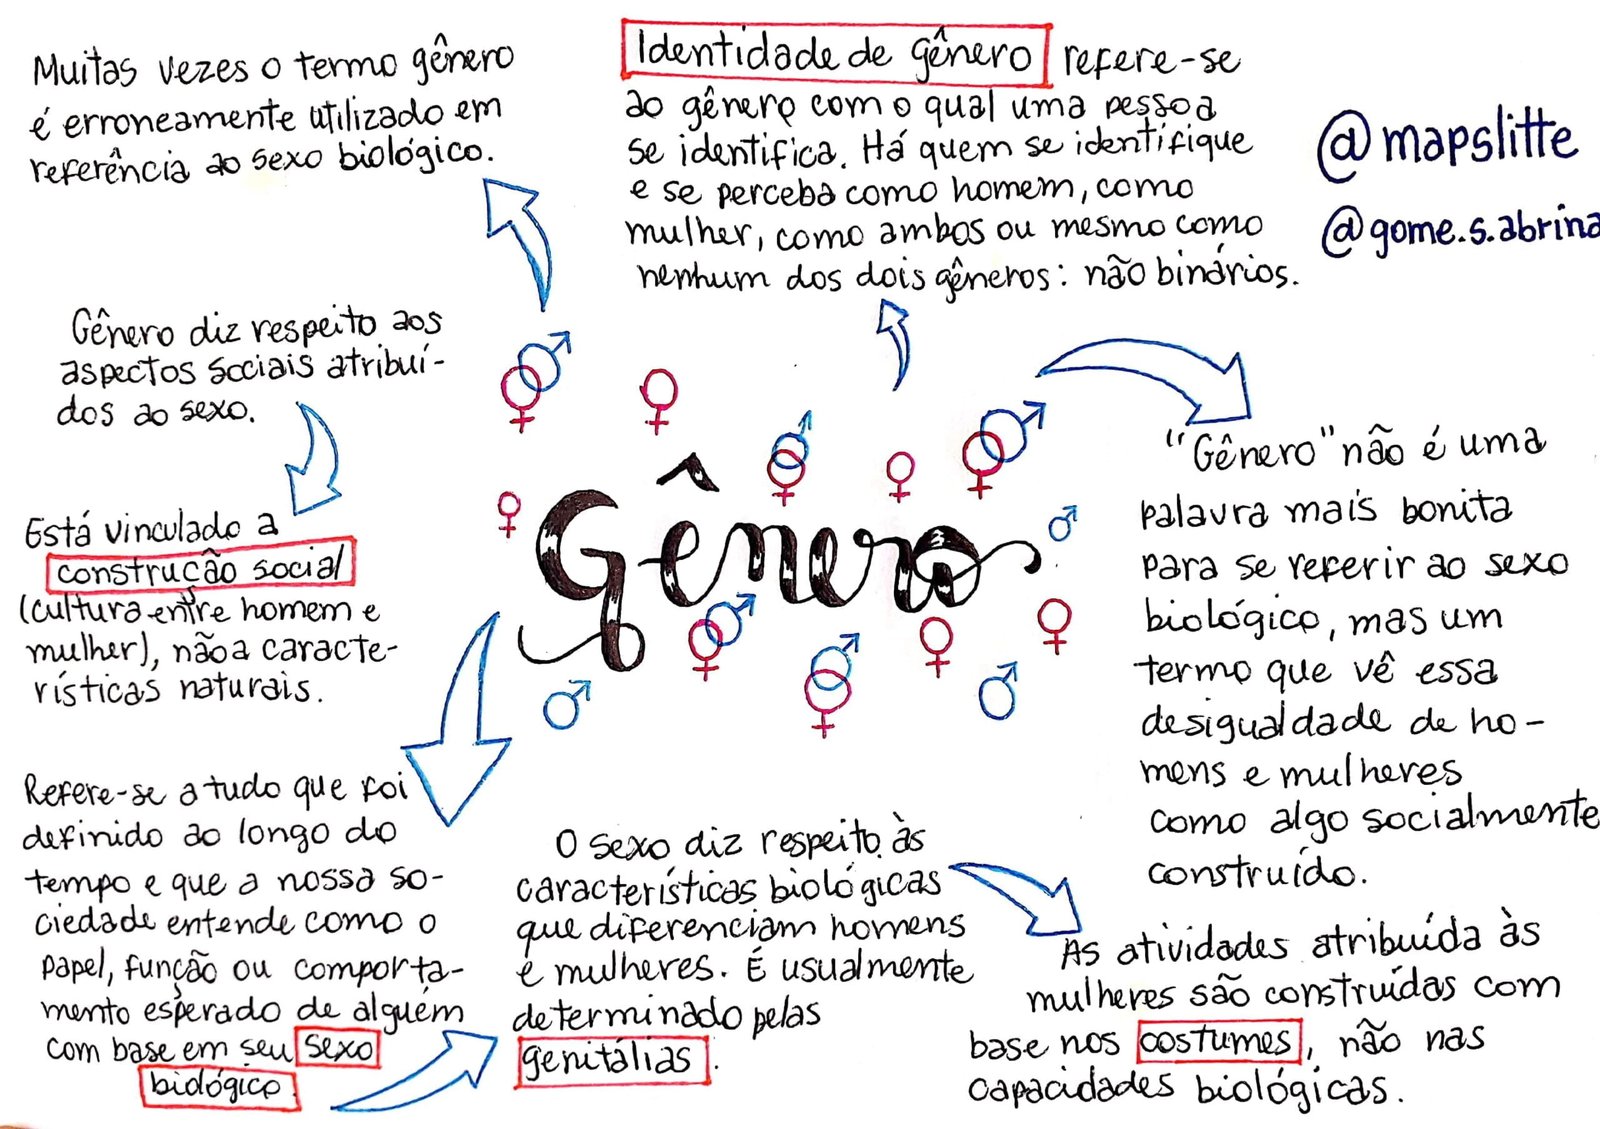 Muitas vezes o termo gênero
é erroneamente utilizado em
referência ao sexo biológico.
Identidade de gênero refere-se
ao gênero com o qual uma pessoa
se identifica. Há quem se identifique
e se perceba como homem, como
mulher, como ambos ou mesmo como
nenhum dos dois gêneros: não binários.
@mapslitte
@gome.s.abrina
Gênero diz respeito aos
aspectos sociais atribuí-
dos ao sexo.
Está vinculado a
construção social
(cultura entre homem e
mulher), não a caracte-
rísticas naturais.
Gênero
"Gênero" não é uma
palavra mais bonita
para se referir ao sexo
biológico, mas um
termo que vê essa
desigualdade de ho-
mens e mulheres
como algo socialmente
construído.
Refere-se a tudo que foi
definido ao longo do
tempo e que a nossa so-
ciedade entende como o
papel, função ou comporta-
mento esperado de alguém
com base em seu sexo
biológico.
O sexo diz respeito às
características biológicas
que diferenciam homens
e mulheres. É usualmente
determinado pelas
genitálias.
As atividades atribuída às
mulheres são construídas com
base nos costumes, não nas
capacidades biológicas.